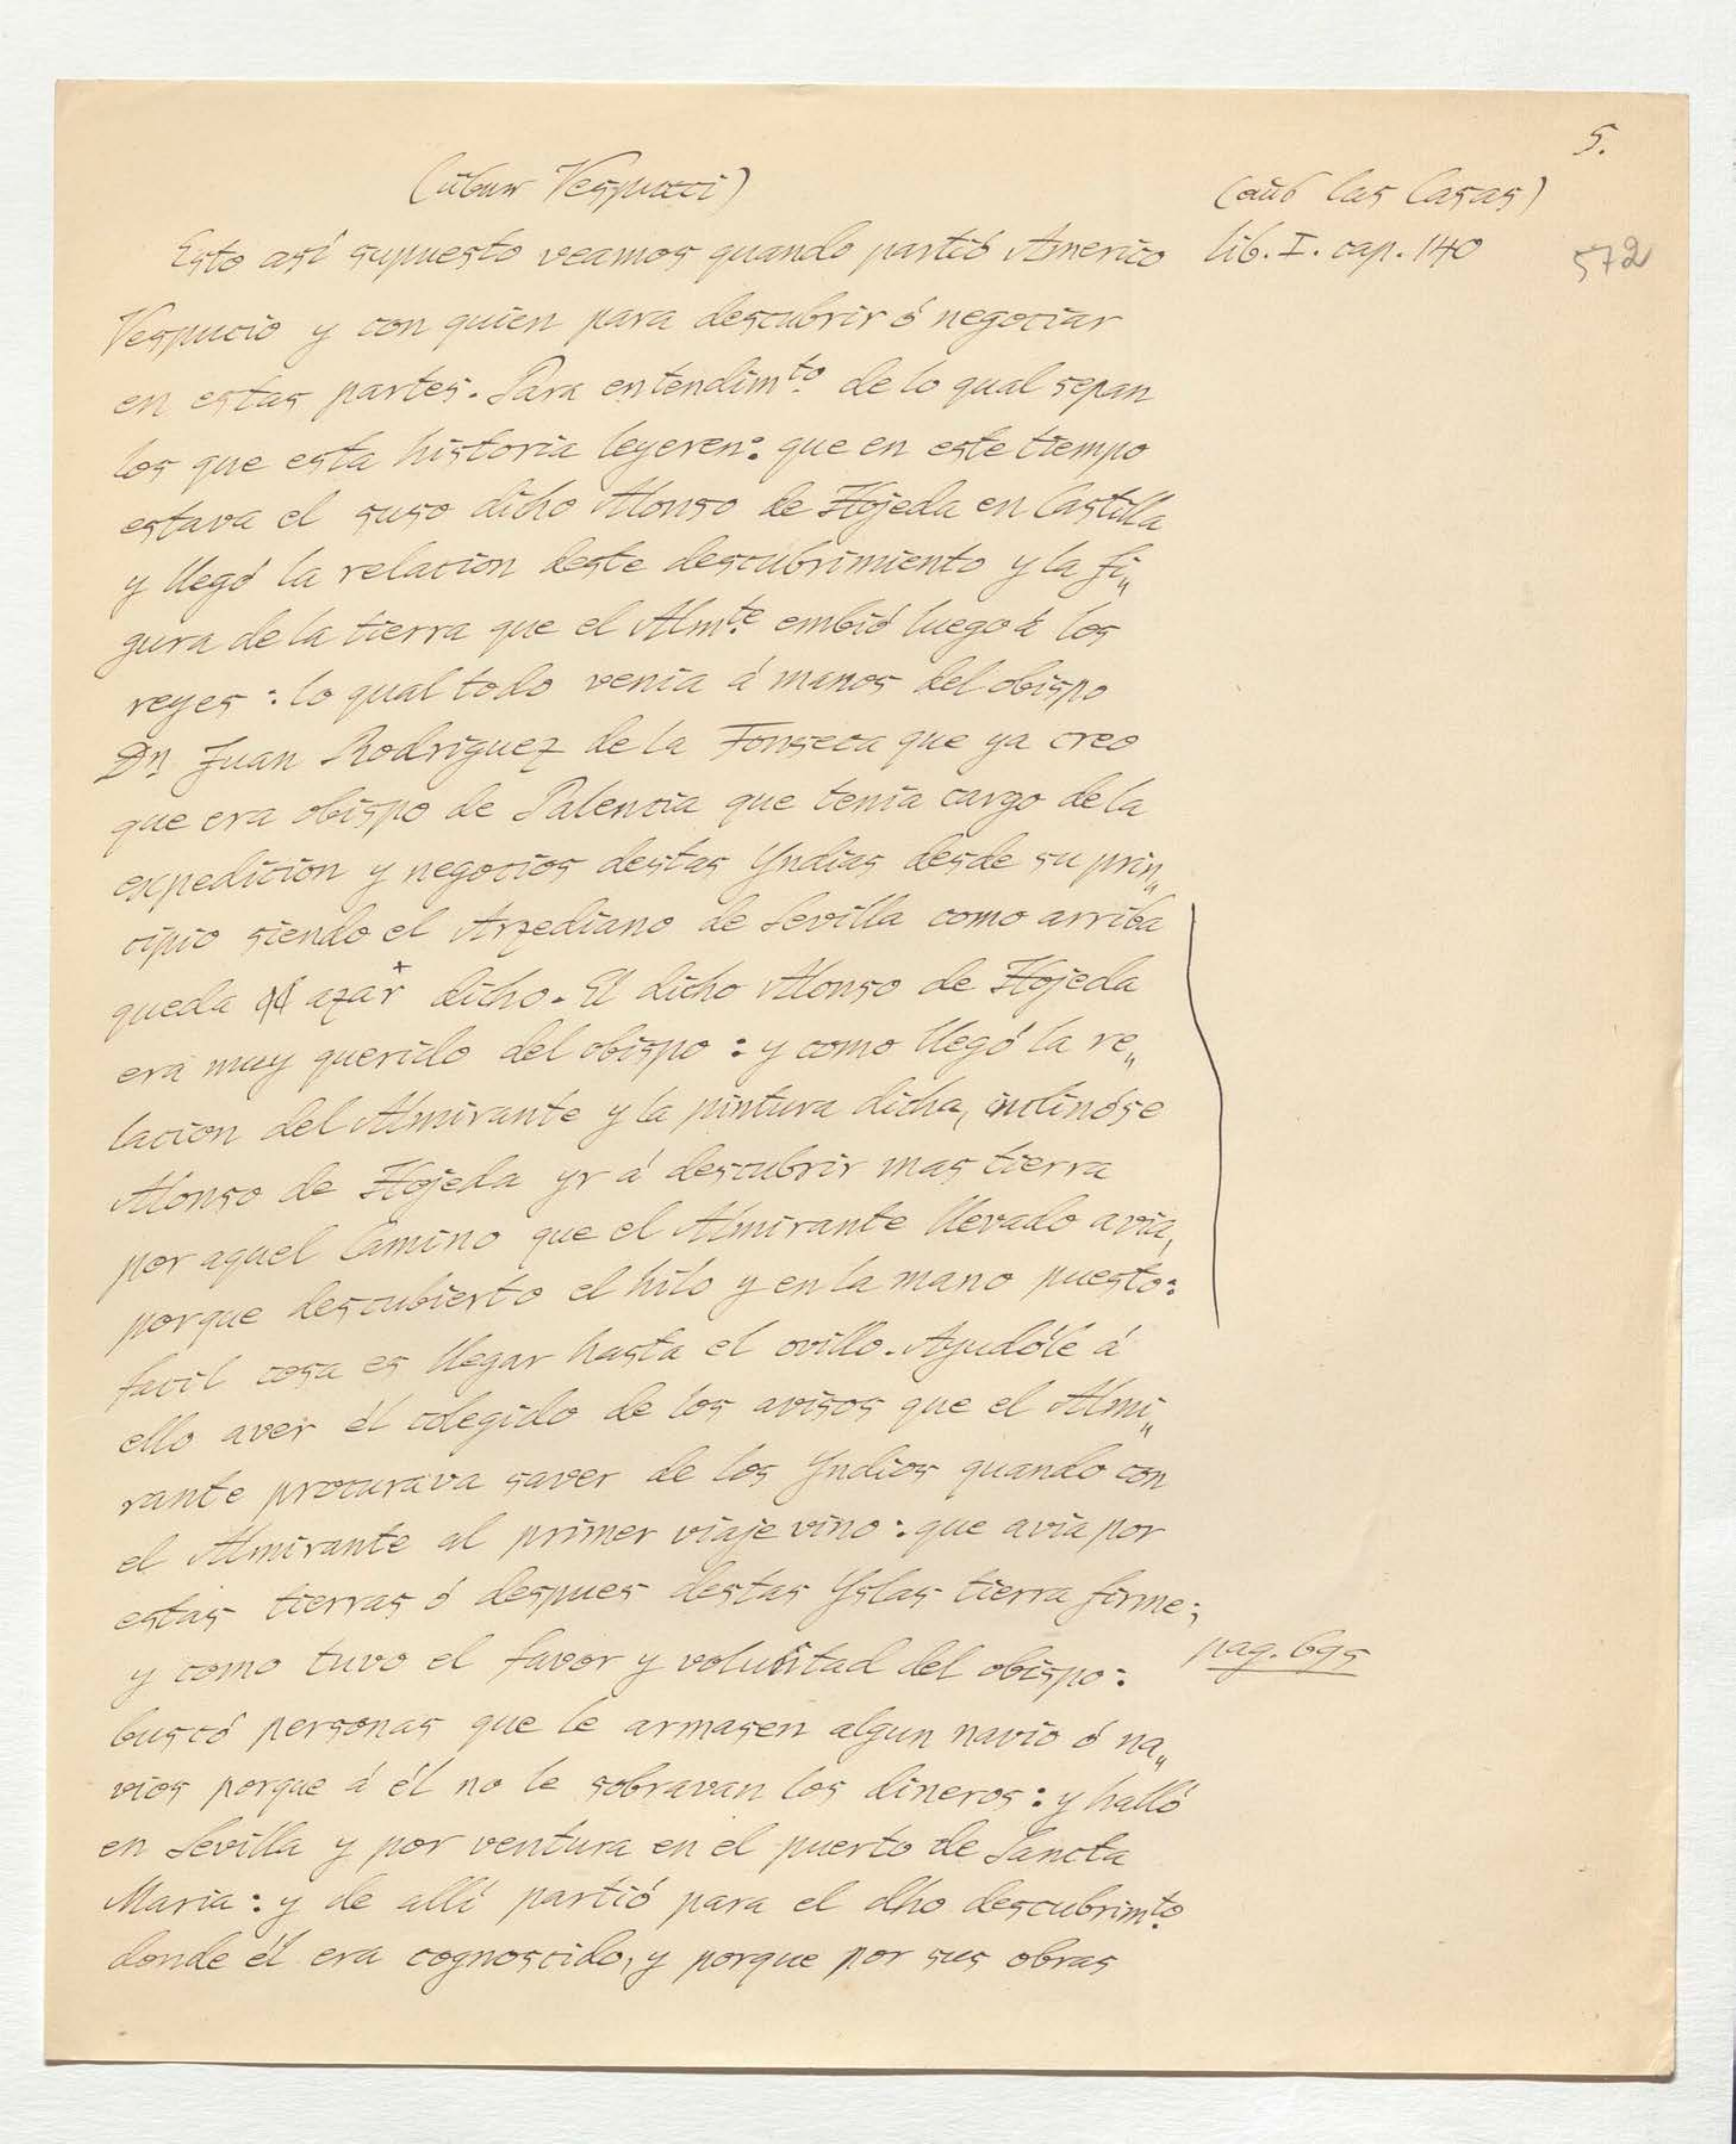 5.
(über Vespucci)
(aus las Casas)
Esto así supuesto veamos quando partió Americo
lib. I. cap. 140
572
Vespucio y con quien para descubrir ó negociar
en estas partes. Para entendimto. de lo qual sepan
los que esta historia leyeren: que en este tiempo
estava el suso dicho Alonso de Hojeda en Castilla
y llegó la relacion deste descubrimiento y la fi„
gura de la tierra que el Almte. embió luego á los
reyes: lo qual todo venia á manos del obispo
Dn Juan Rodriguez de la Fonseca que ya creo
que era obispo de Palencia que tenia cargo de la
expedicion y negocios destas Yndias desde su prin„
cipio siendo el Arzediano de Sevilla como arriba
queda azar dicho. El dicho Alonso de Hojeda
era muy querido del obispo: y como llegó la re„
lacion del Almirante y la pintura dicha, inclinóse
Alonso de Hojeda yr á descubrir mas tierra
por aquel Camino que el Almirante llevado avia,
porque descubierto el hilo y en la mano puesto:
facil cosa es llegar hasta el ovillo. Ayudóle á
ello aver él colegido de los avisos que el Almi„
rante procurava saver de los Yndios quando con
el Almirante al primer viaje vino: que avia por
estas tierras ó despues destas Yslas tierra firme;
y como tuvo el favor y voluntad del obispo:
pag. 695
buscó personas que le armasen algun navio ó na„
vios porque á él no le sobravan los dineros: y halló
en Sevilla y por ventura en el puerto de Sancta
Maria: y de allí partió para el dho descubrimto.
donde él era cognoscido, y porque por sus obras